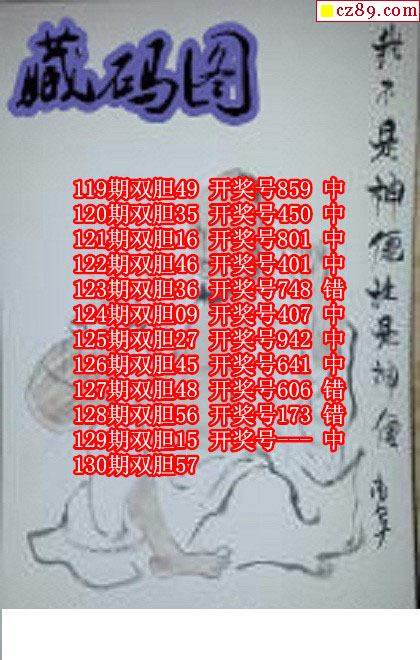 cz89.com
藏码图
119期双胆49 开奖号859 中
120期双胆35 开奖号450 中
121期双胆16 开奖号801 中
122期双胆46 开奖号401 中
123期双胆36 开奖号748 错
124期双胆09 开奖号407 中
125期双胆27 开奖号942 中
126期双胆45 开奖号641 中
127期双胆48 开奖号606 错
128期双胆56 开奖号173 错
129期双胆15 开奖号--- 中
130期双胆57
我不是神仙
是神仙